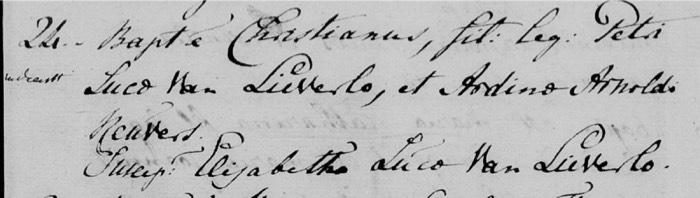 24. Bapt. e Christianus, fil: leg: Petri
Luca Van Lieverlo, et Ardina Arnoldi
Reuvers.
Suscep: Elizabetha Luca Van Lieverlo.